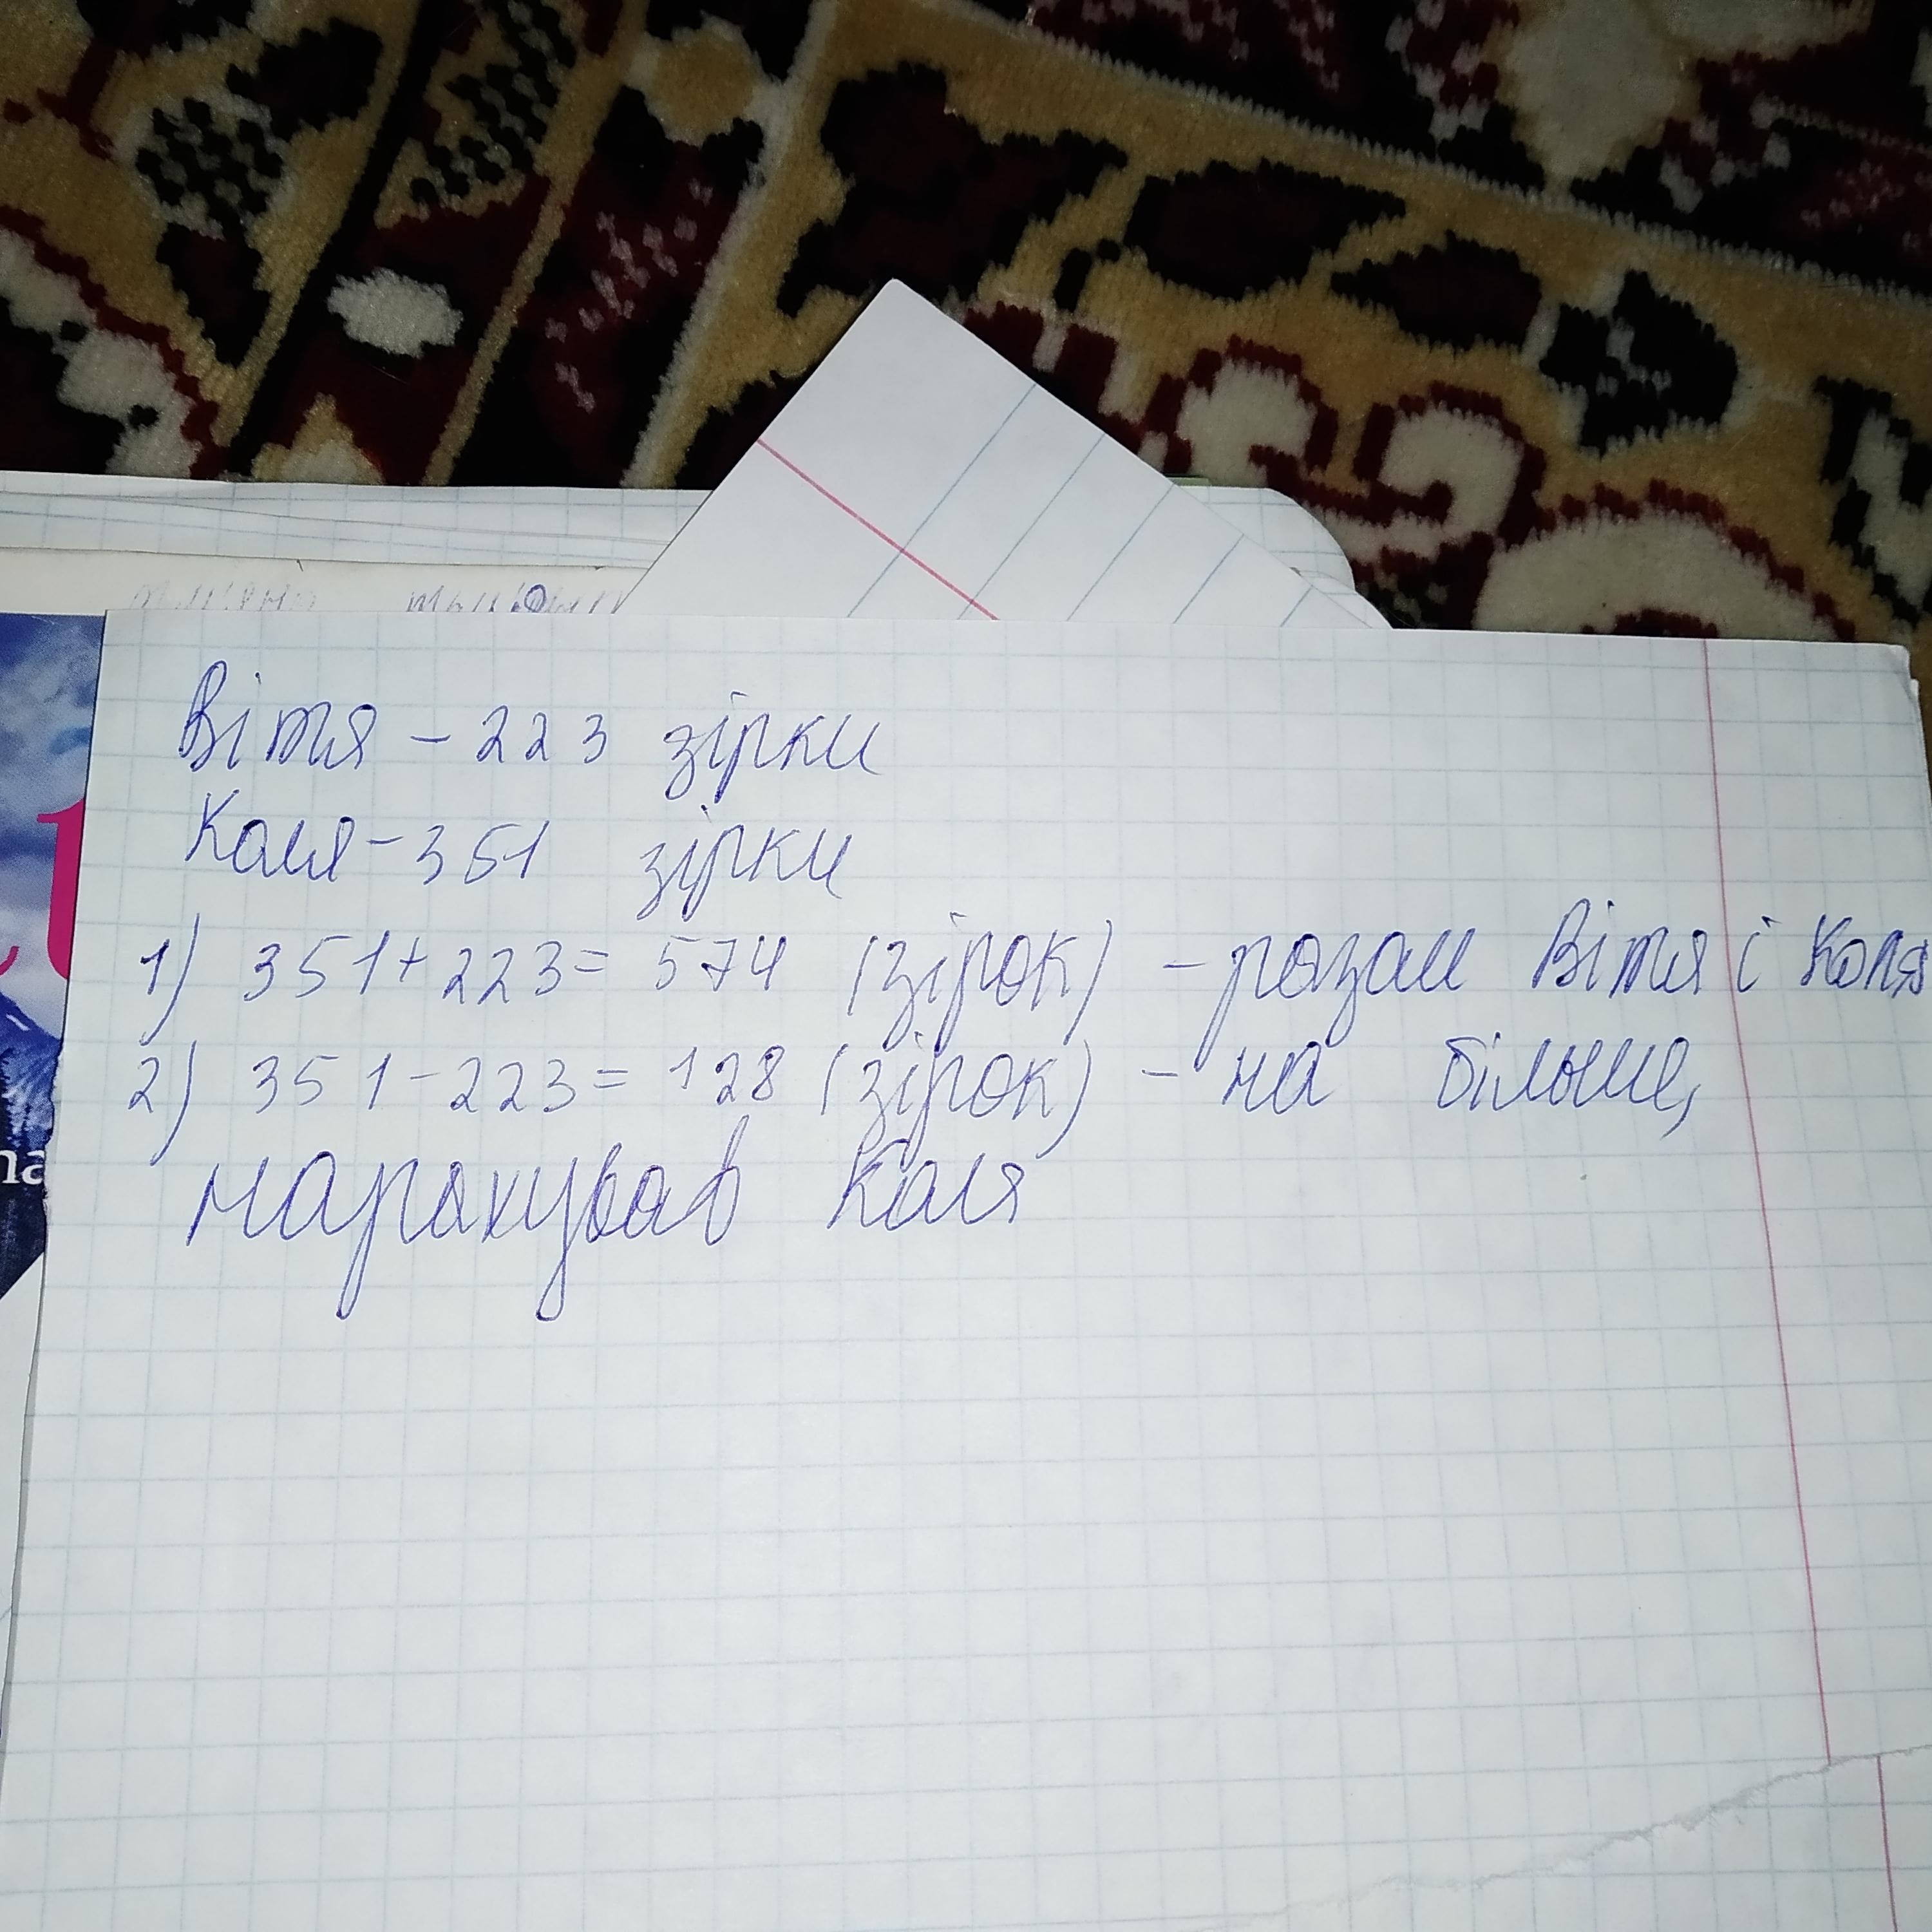 Вітя - 223 зірки
Коля - 351 зірки
1) 351 + 223 = 574 (зірок) - разом Вітя і Коля
2) 351 - 223 = 128 (зірок) - на більше,
нарахував Коля
na